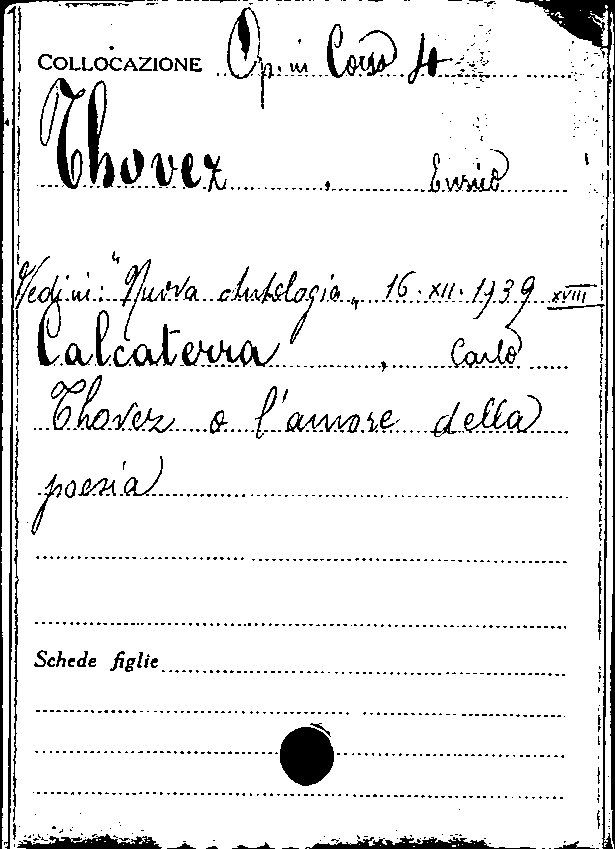 COLLOCAZIONE Op. in Corso 4
Thovez, Enrico
Vedi in: "Nuova Antologia„ 16.XII.1939 XVIII
Calcaterra, Carlo
Thovez o l'amore della
poesia
Schede figlie